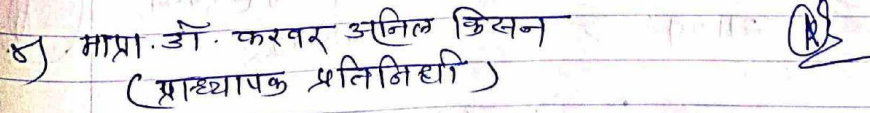 ४) मा.प्रा. डॉ. करवर अनिल किसन
(प्राध्यापक प्रतिनिधी)